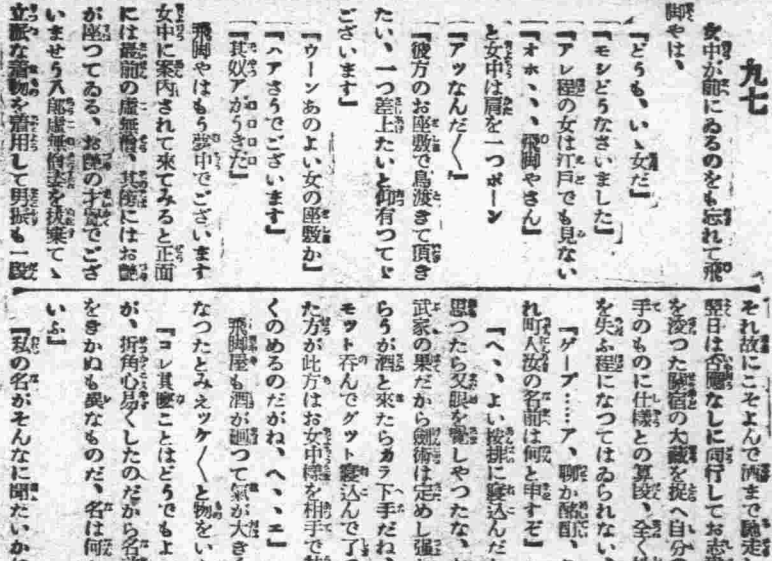 九七
女中が前にゐるのをも忘れて飛
脚やは、
『どうも、いゝ女だ』
『モシどうなさいました』
『アレ程の女は江戸でも見ない
『オホヽヽヽ飛脚やさん』
と女中は肩を一つポーン
『アツなんだ〱』
『彼方のお座敷で鳥渡きて頂き
たい、一つ差上たいと仰有つてよ
ございます』
『ウーンあのよい女の座敷か』
『ハアさうでございます』
『其奴アがうきだ』
飛脚やはもう夢中でございます
女中に案内されて来てみると正面
には最前の虚無僧、其傍にはお艶
が座つてゐる、お艶の才覚でござ
いませう八郎虚無僧姿を扶棄てゝ
立派な着物を着用して男振も一段
それ故にこそよんで酒まで馳走し
翌日は否応なしに同行してお志
を浚つた 宿の大蔵を捉へ自分の
手のものに仕様との算段、全く
を失ふ程になつてはゐられない、
『ゲープ……ア、聊か酩酊、
れ町人汝の名前は何と申すぞ』
『ヘヽヽよい按排に寝込んだ
思つたら又眼を覚しやつたな、
武家の果だから剣術は定めし強
らうが酒と来たらカラ下手だね、
モツト呑んでグツト寝込んで了
た方が此方はお女中様を相手で
くのめるのだがね、ヘヽヽエ』
飛脚屋も酒が廻つて気が大き
なつたとみえツケ〱と物をい
『コレ其麼ことはどうでもよ
が、折角心易くしたのだから名
をきかぬも異なものだ、名は何
いふ』
『私の名がそんなに聞たいか